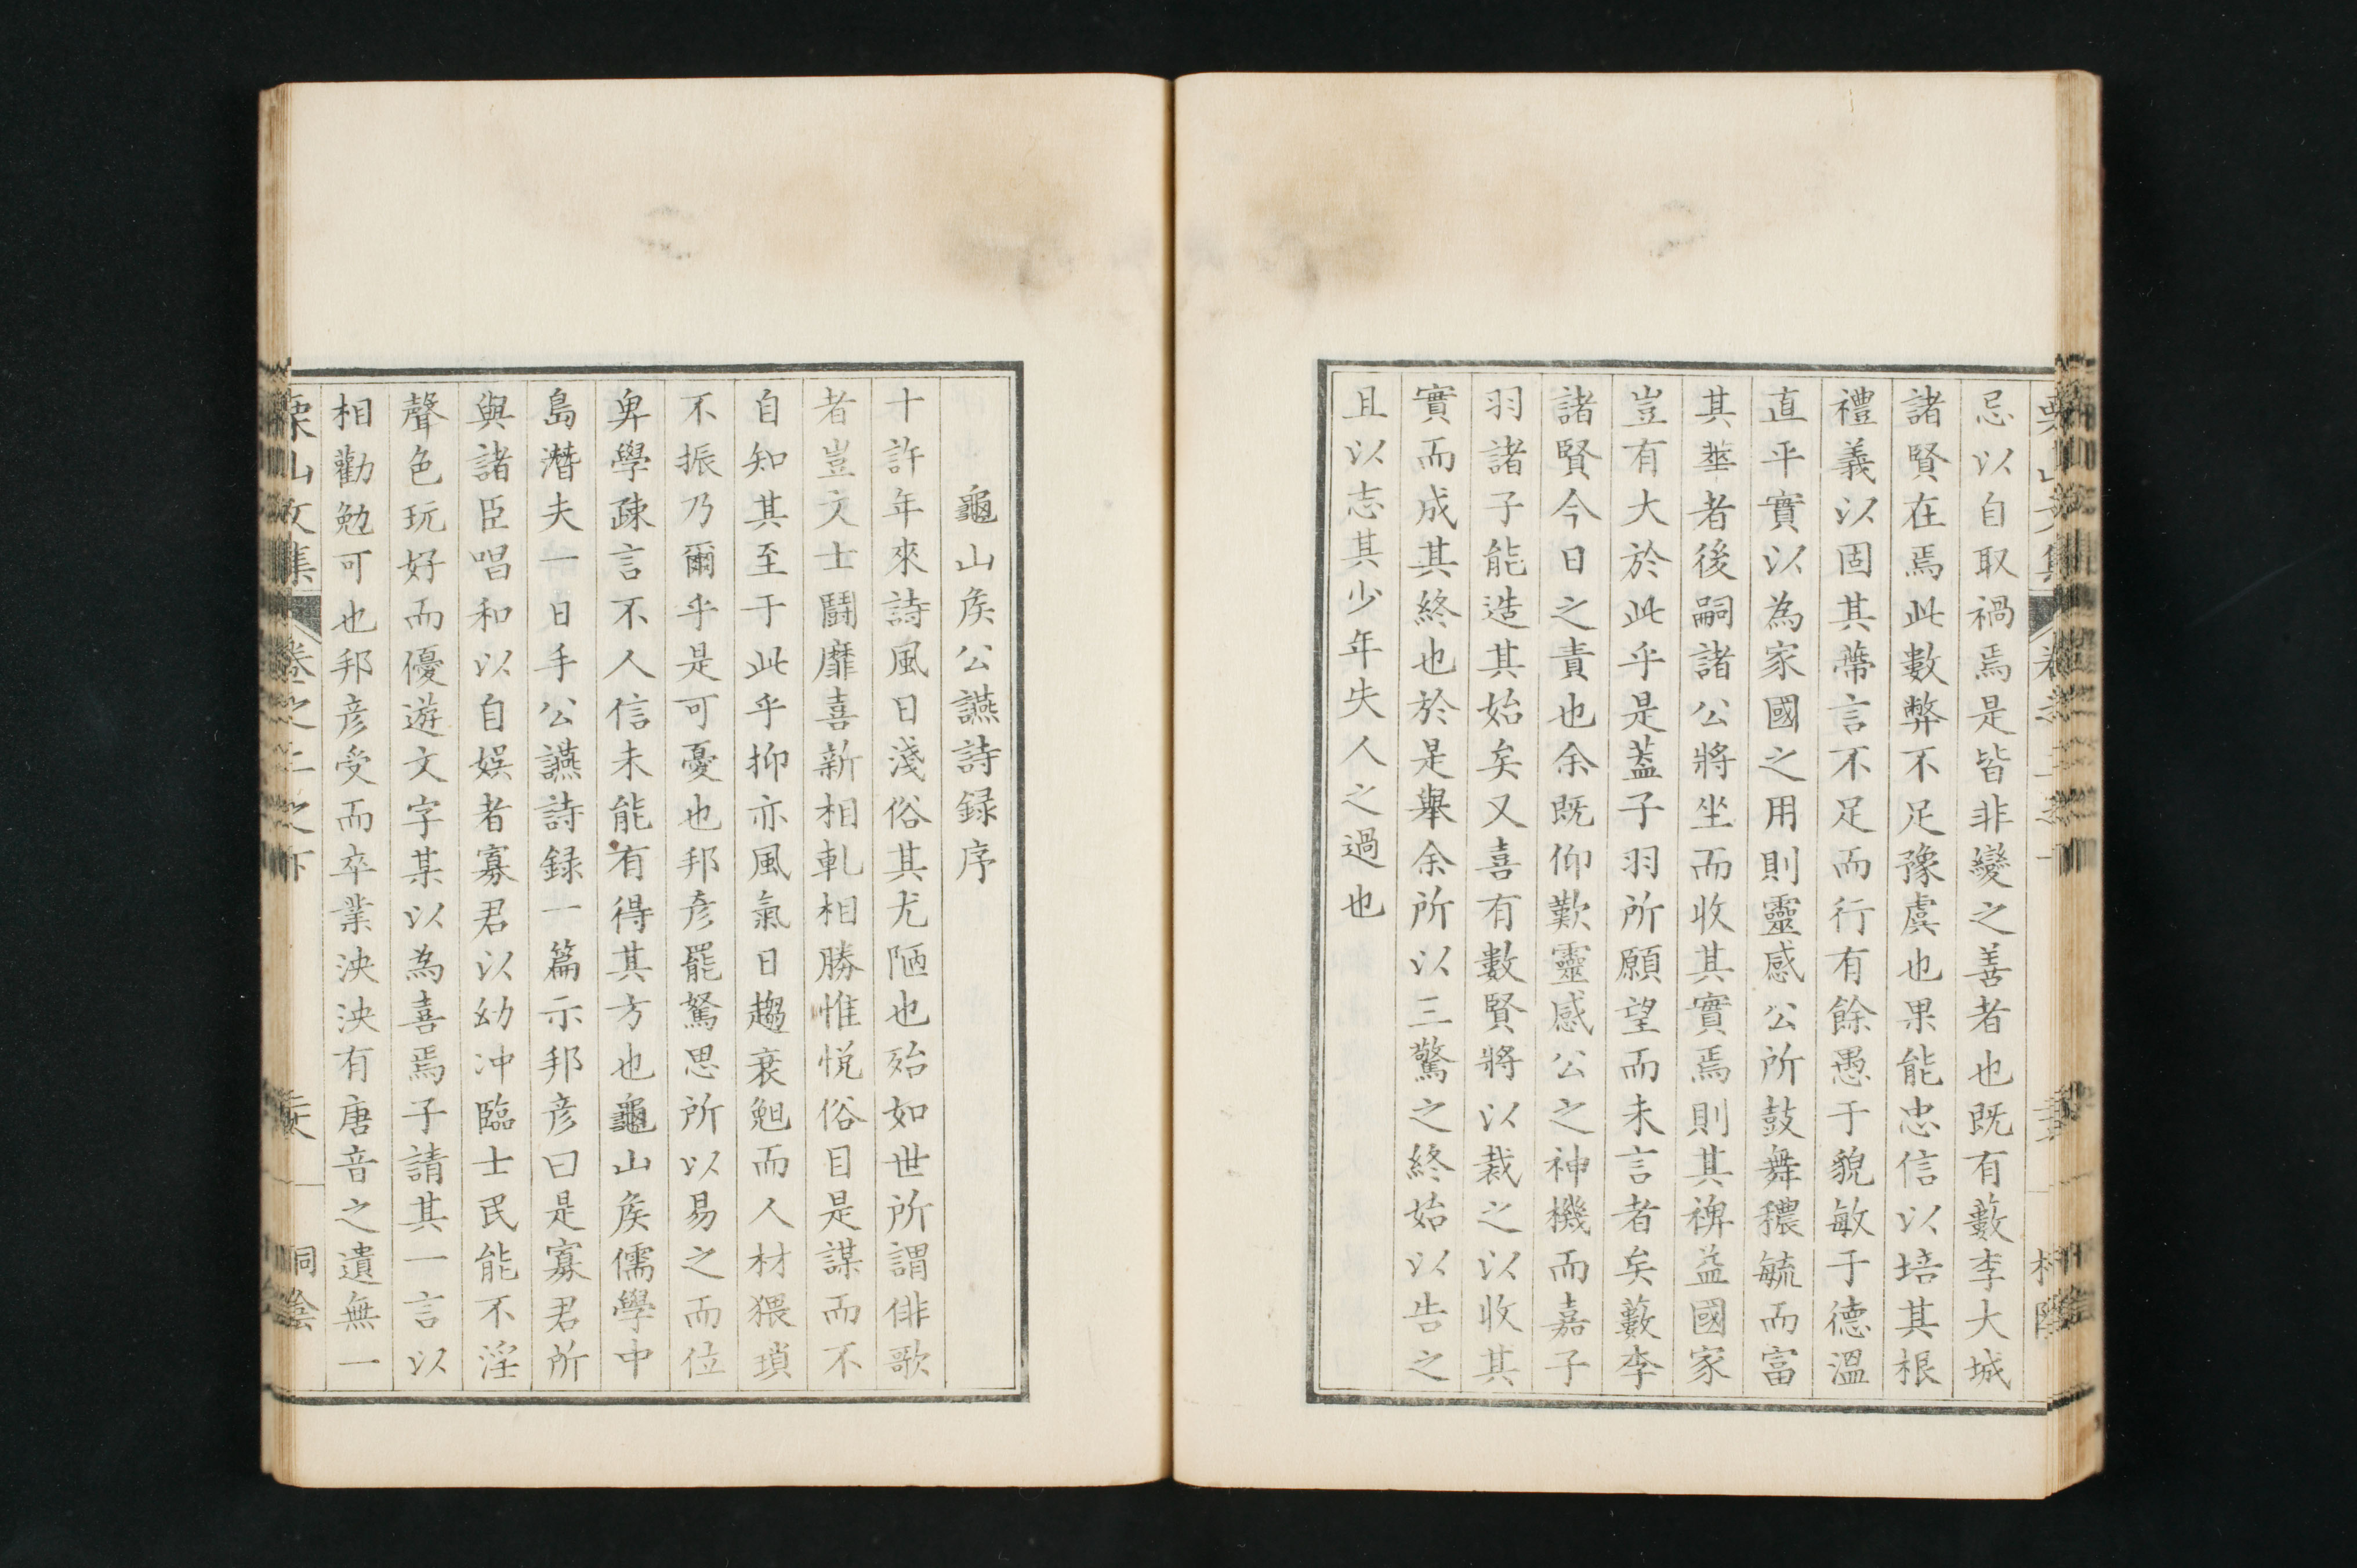 忌以自取禍焉是皆非變之善者也既有藪李大城
諸賢在焉此數弊不足豫虞也果能忠信以培其根
禮義以固其蔕言不足而行有餘愚于貌敏于德溫
直平實以為家國之用則靈感公所鼓舞穠毓而富
其華者後嗣諸公將坐而收其實焉則其裨益國家
豈有大於此乎是蓋子羽所願望而未言者矣藪李
諸賢今日之責也余既仰歎靈感公之神機而嘉子
羽諸子能造其始矣又喜有數賢將以裁之以收其
實而成其終也於是舉余所以三驚之終始以告之
且以志其少年失人之過也
龜山矦公讌詩録序
十許年來詩風日淺俗其尤陋也殆如世所謂俳歌
者豈文士鬪靡喜新相軋相勝惟悅俗目是謀而不
自知其至于此乎抑亦風氣日趨衰魁而人材猥瑣
不振乃爾乎是可憂也邦彥罷駑思所以易之而位
卑學疎言不人信未能有得其方也龜山矦儒學中
島潛夫一日手公讌詩録一篇示邦彥曰是寡君所
與諸臣唱和以自娛者寡君以幼冲臨士民能不淫
聲色玩好而優遊文字某以為喜焉子請其一言以
相勸勉可也邦彥受而卒業泱泱有唐音之遺無一
栗山文集 卷之二之下